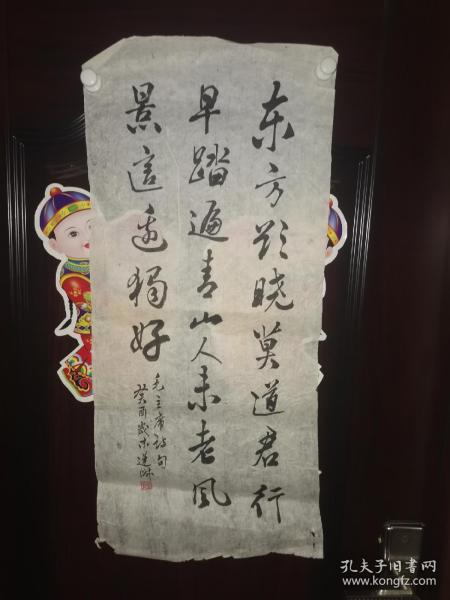 东方欲晓莫道君行
早踏遍青山人未老风
景这边独好
毛主席诗句
癸酉岁末
孔夫子旧书网
www.kongfz.com